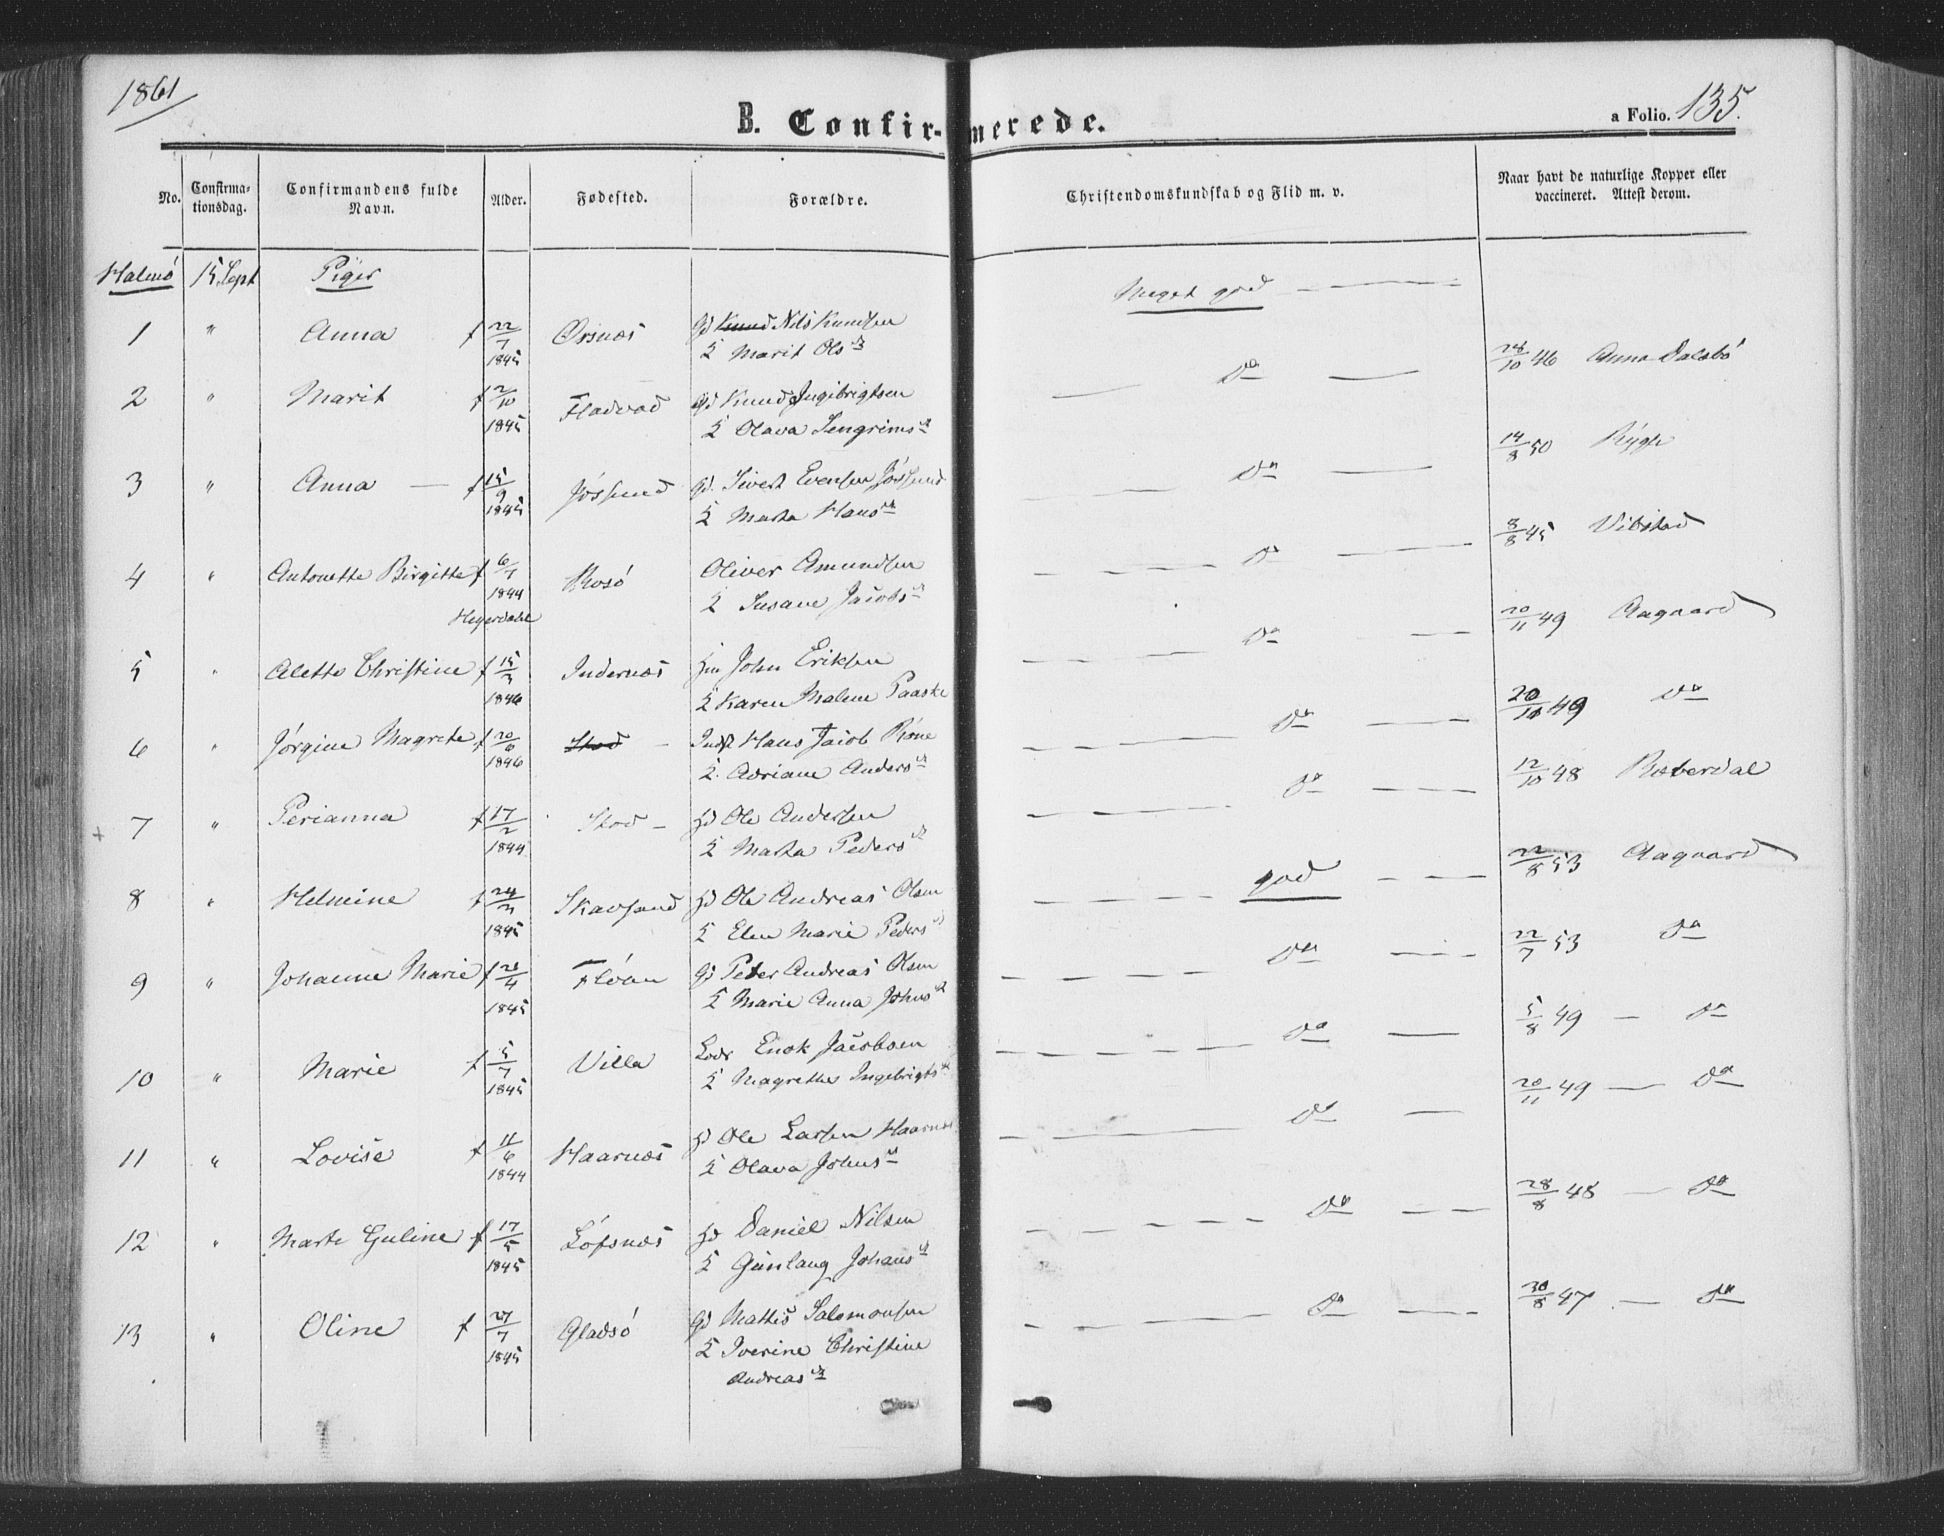 1861
B. Confirmerede.
a Folio. 135.
No.
Confirma-
tionsdag.
Confirmandens fulde
Navn.
Alder.
Fødested.
Forældre.
Christendomskundskab og Flid m. v.
Naar havt de naturlige Kopper eller
vaccineret. Attest derom.
15 Sept Piger
Meget god
1 " Anna f 22/7 1845 Ørsnæs Gd Knud Nils Knudsen
K Marit Ols d
Do 28/10 46 Anna Dalsbó
2 " Marit f 2/10 1845 Fladvad Gd Knud Ingibrigtsen
K Olava Sengrims d
Do 14/8 50 Rygh
3 " Anna f 15/9 1845 Jóssund Gd. Sivert Evensen Jóssund
K Marta Hans d
Do 8/8 45 Vibstad
4 " Antonette Birgitte f 6/7 1844 Rosó Oliver Amundsen
Heyerdahl
K Susane Jacobs d
Do 20/11 49 Aagaard
5 " Alette Christine f 15/3 1846 Indernæs John Eriksen
K Karen Malene Paaske
Do 20/10 49 Do
6 " Jórgine Magrete f 20/6 1846 Stod Inds Hans Jacob Róne
K. Adriane Anders d
Do 12/10 48 Roterdal
7 " Perianna f 17/2 1844 Stod Hd Ole Andersen
K Marta Peders d
god 22/8 53 Aagaard
8 " Helmine f 24/3 1845 Skavsand Hd Ole Andreas Olsen
K Elen Marie Peders d
Do 22/7 53 Do
9 " Johanne Marie f 20/4 1845 Flóan Gd Peter Andreas Olsen
K Marie Anna Johns d
Do 5/8 49 Do
10 " Marie f 5/7 1845 Villa Lodr Enok Jacobsen
K Magrethe Ingebrigts d
Do 20/11 49 Do
11 " Lovise f 11/6 1844 Haarnæs Hd Ole Larsen Haarnæs
K Olava Johns d
Do 28/8 48 Do
12 " Marte Guline f 17/5 1845 Lófsnæs Hd Daniel Nilsen
K Gunlaug Johans d
Do 30/8 47 Do
13 " Oline f 27/7 1845 Gladsó Gd Mathis Salomonsen
K Iverine Christine
Andreas d